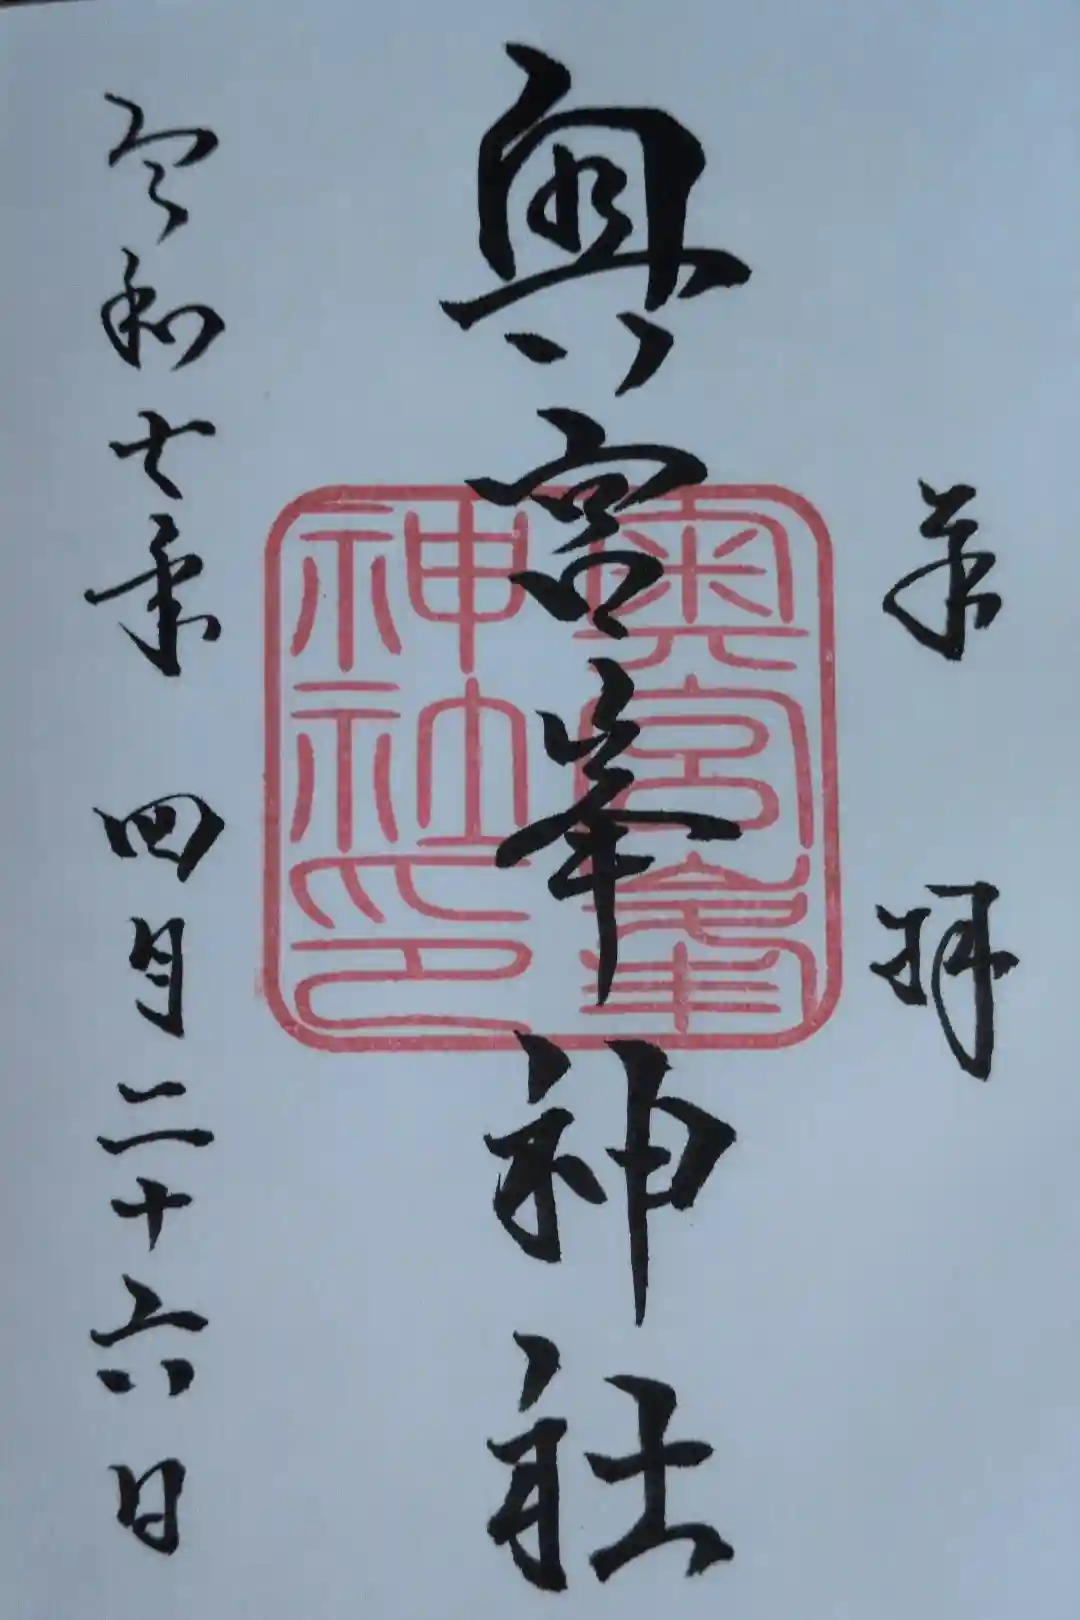 奉拝
奥宮峯神社
奥宮峯
神社印
令和七年 四月二十六日